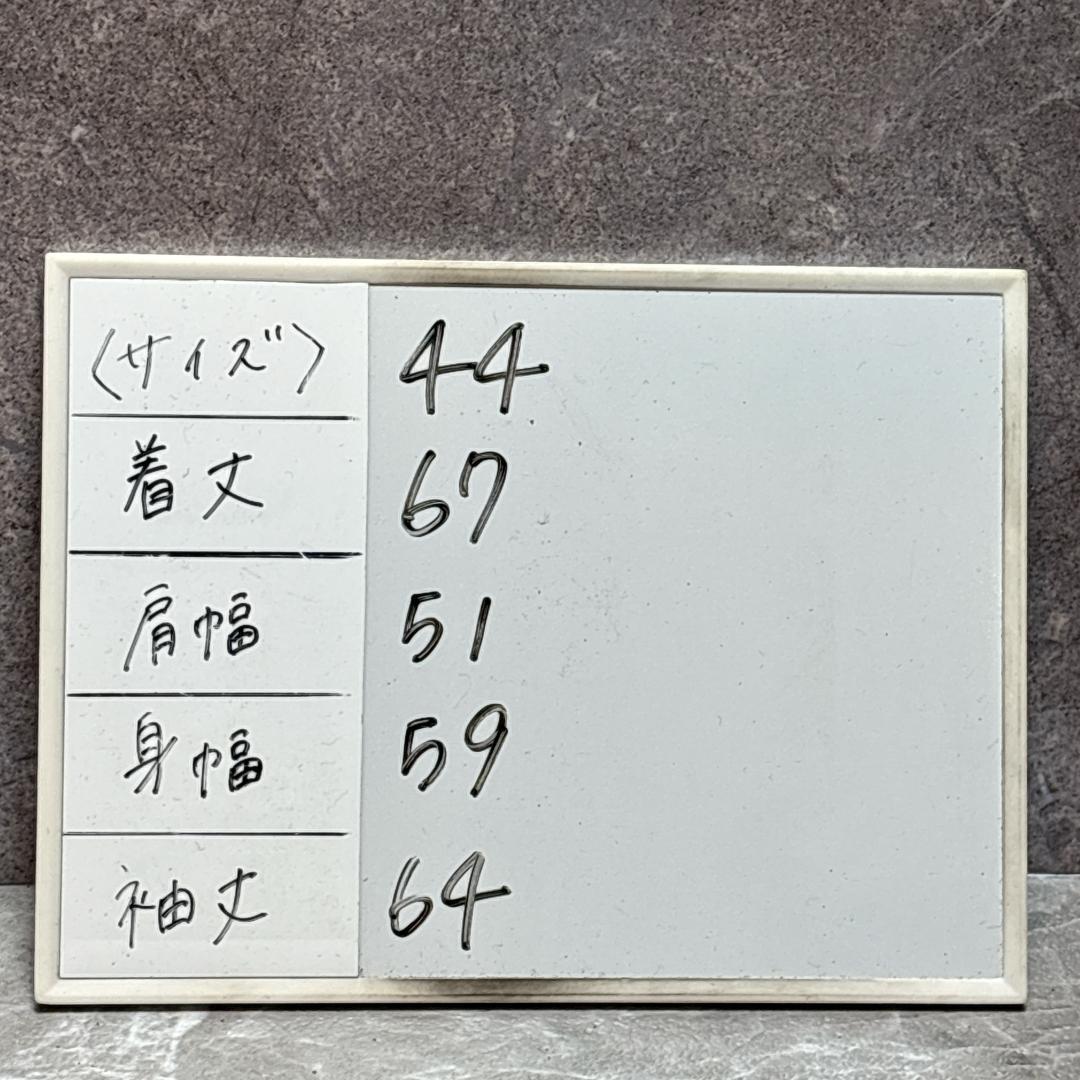 〈サイズ〉 44
着丈 67
肩幅 51
身幅 59
袖丈 64